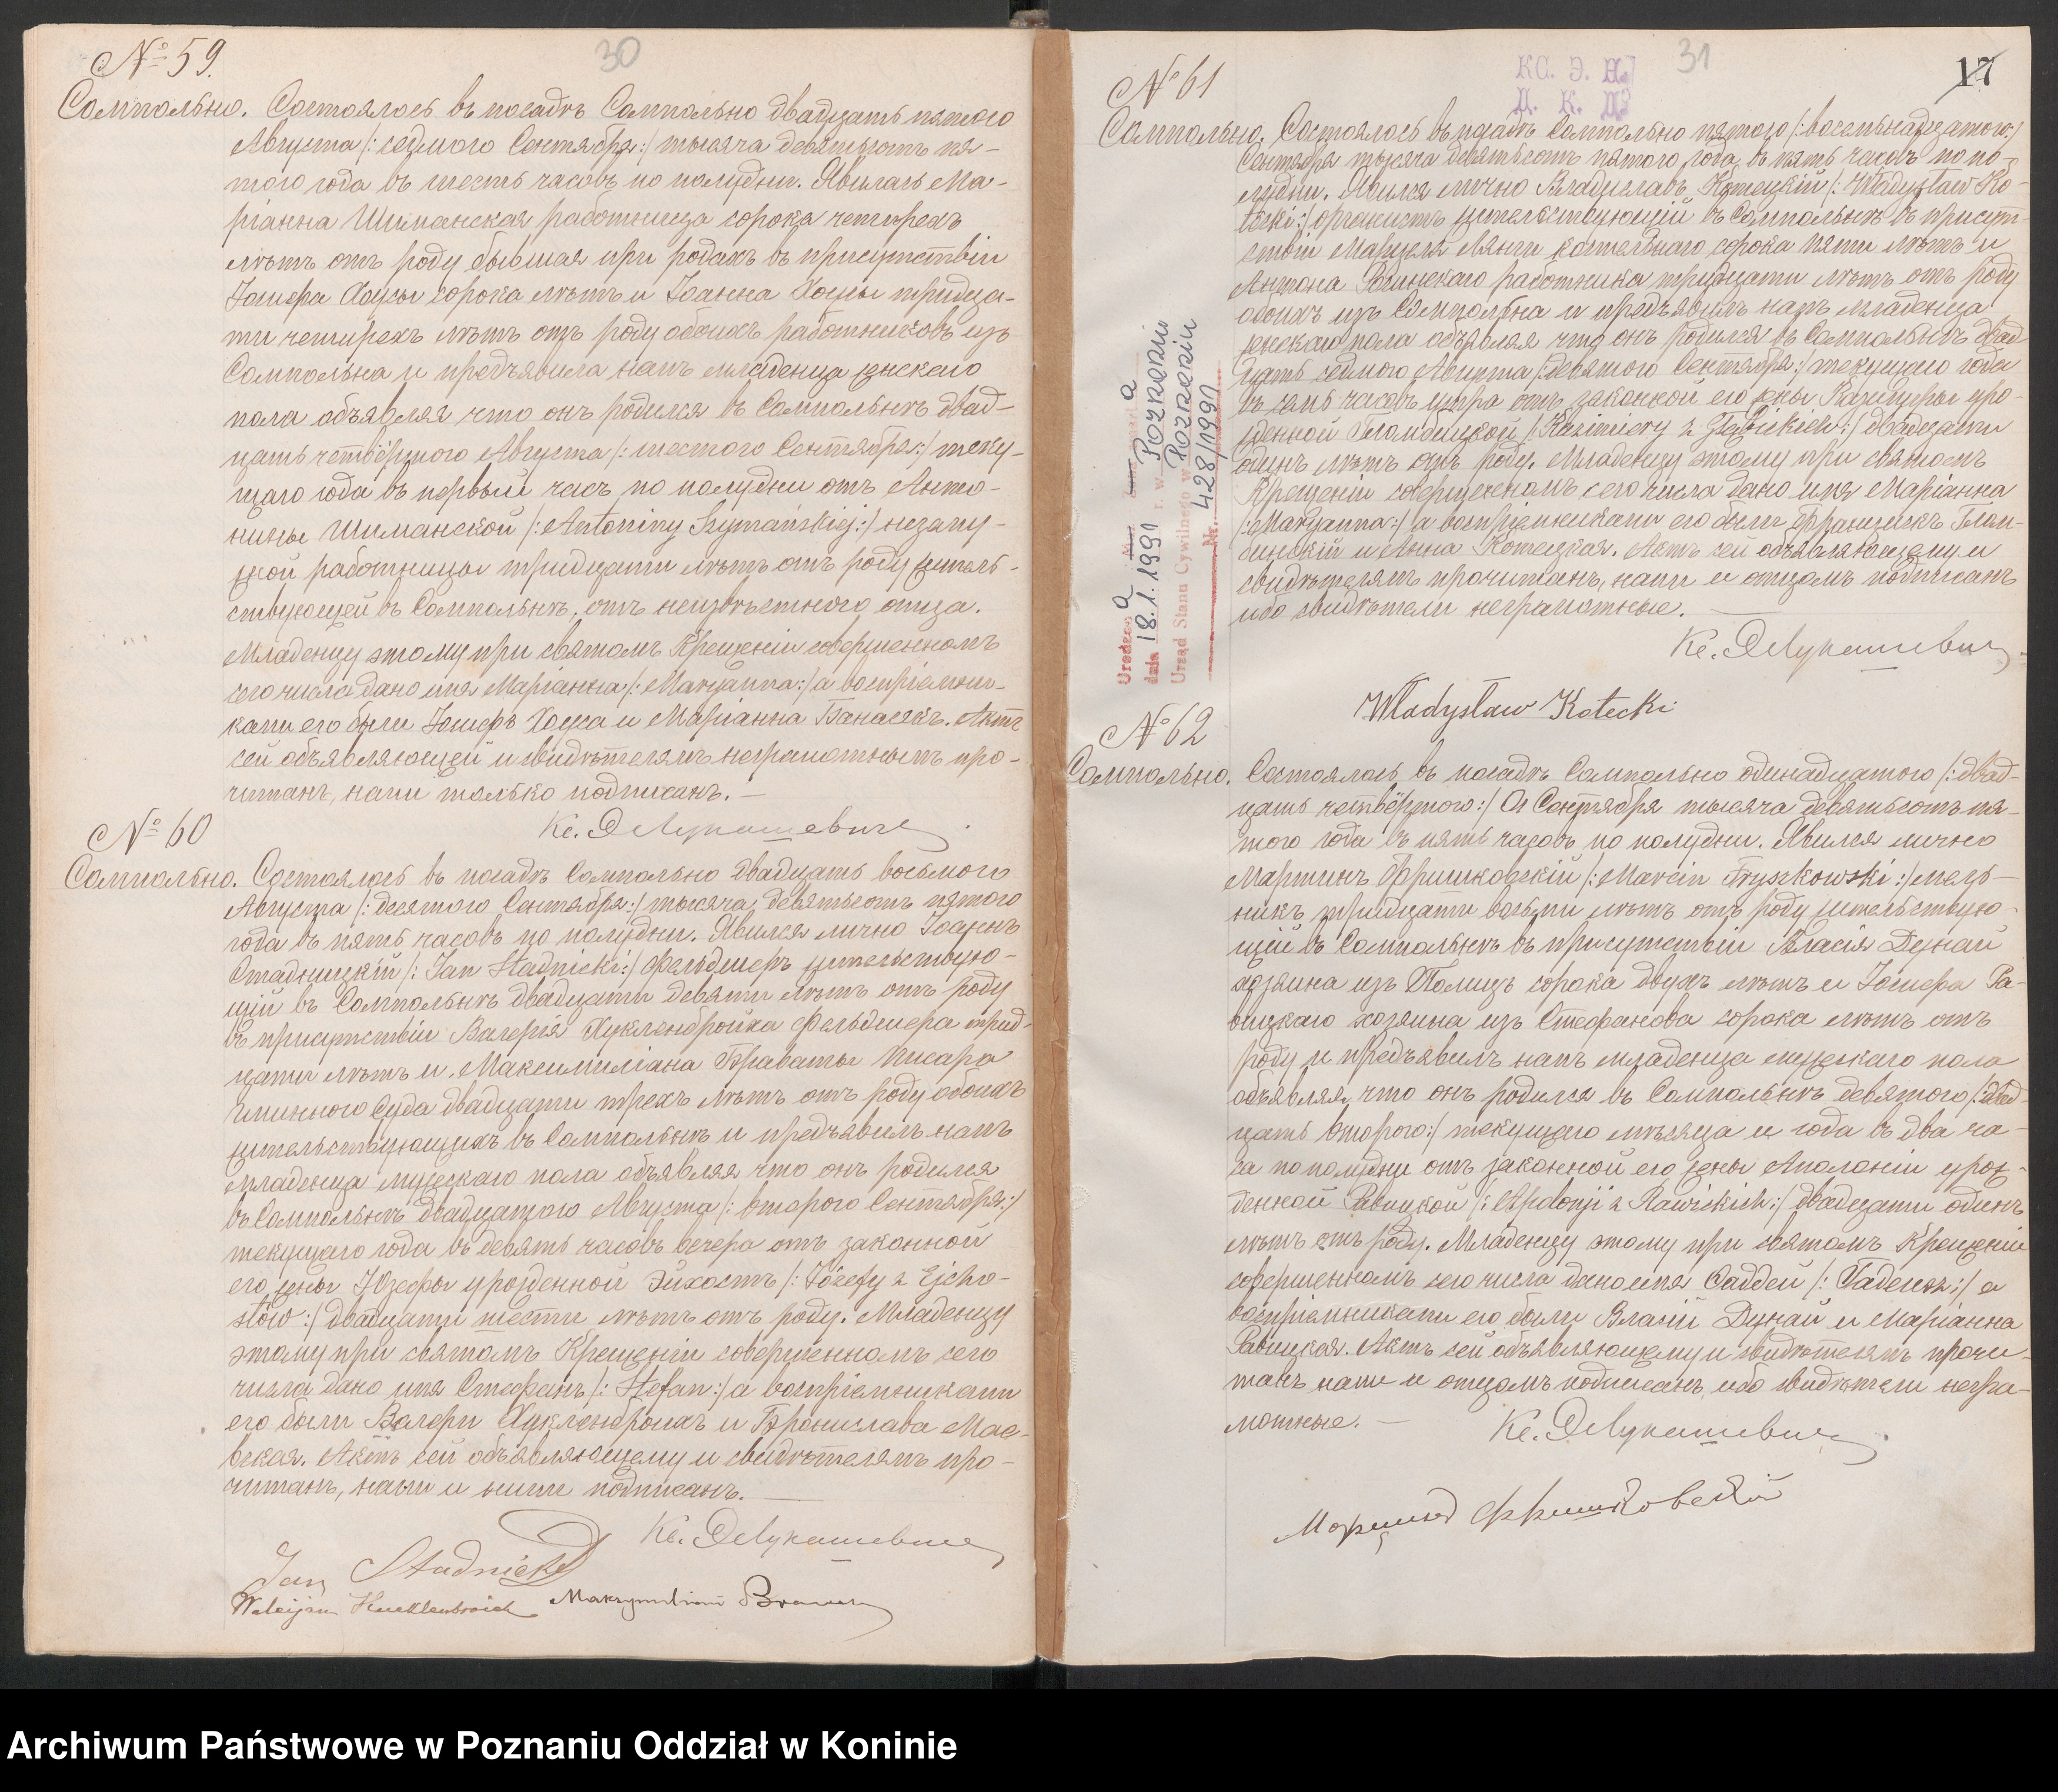 30
№ 59.
Сомпольно. Состоялось въ посадѣ Сомпольно двадцать пятого
Августа /: седмого Сентября :/ тысяча девятьсотъ пя-
того года въ шесть часовъ по полудни. Явилась Ма-
ріанна Шиманская работница сорока четырехъ
лѣтъ отъ роду бывшая при родахъ въ присутствіи
Іосифа сорока лѣтъ и Іоанна тридца-
ти четырехъ лѣтъ отъ роду обоихъ работниковъ изъ
Сомпольна и предъявила намъ младенца женскаго
пола объявляя что онъ родился въ Сомпольнѣ двад-
цать четвёртого Августа /: шестого Сентября :/ теку-
щаго года въ первый часъ по полудни отъ Анто-
нины Шиманской /: Antoniny Szymańskiej :/ незаму-
жной работницы тридцати лѣтъ отъ роду житель-
ствующей въ Сомпольнѣ, отъ неизвѣстного отца.
Младенцу этому при святомъ Крещеніи совершенномъ
сего числа дано имя Маріанна /: Maryanna :/ а воспріемни-
ками его были Іосифъ и Маріанна Банасякъ. Актъ
сей объявляющей и свидѣтелямъ неграмотнымъ про-
читанъ, нами только подписанъ. —
Кс. Д Лукашевичъ
№ 60
Сомпольно. Состоялось въ посадѣ Сомпольно двадцать восьмого
Августа /: десятого Сентября :/ тысяча девятьсотъ пятого
года въ пять часовъ по полудни. Явился лично Іоаннъ
Стадницкій /: Jan Stadnicki :/ фельдшеръ жительствую-
щій въ Сомпольнѣ двадцати девяти лѣтъ отъ роду
въ присутствіи Валерія Кукленбройха фельдшера трид-
цати лѣтъ и Максимиліана Браваты писаря
гминного Суда двадцати трехъ лѣтъ отъ роду обоихъ
жительствующихъ въ Сомпольнѣ и предъявилъ намъ
младенца мужскаго пола объявляя что онъ родился
въ Сомпольнѣ двадцатого Августа /: второго Сентября :/
текущаго года въ девять часовъ вечера отъ законной
его жены Юзефы урожденной Эйхостъ /: Józefy z Ejcho-
stów :/ двадцати шести лѣтъ отъ роду. Младенцу
этому при святомъ Крещеніи совершенномъ сего
числа дано имя Стефанъ /: Stefan :/ а воспріемниками
его были Валери Кукленбройхъ и Бронислава Мас-
вская. Актъ сей объявляющему и свидѣтелямъ про-
читанъ, нами и ними подписанъ. —
Кс. Д Лукашевичъ
Jan Stadnicki
Waleryan Kucklenbroich Maksymilian
31
17
№ 61
Сомпольно. Состоялось въ посадѣ Сомпольно пятого /: восемьнадцатого :/
Сентября тысяча девятьсотъ пятого года въ пять часовъ по по-
лудни. Явился лично Владиславъ Котецкій /: Władysław Ko-
tecki :/ органистъ жительствующій въ Сомпольнѣ въ присут-
ствіи Марцеля костельнаго сорока пяти лѣтъ и
Антона работника тридцати лѣтъ отъ роду
обоихъ изъ Сомпольна и предъявилъ намъ младенца
женскаго пола объявляя что онъ родился въ Сомпольнѣ двад
цать седмого Августа /: девятого Сентября :/ текущаго года
въ семь часовъ утра отъ законной его жены Казимеры уро-
жденной Гломбицкой /: Kazimiery z Głębickich :/ двадцати
одинъ лѣтъ отъ роду. Младенцу этому при святомъ
Крещеніи совершенномъ сего числа дано имя Маріанна
/: Maryanna :/ а воспріемниками его были Францишекъ Глом-
бицкій и Анна Котецкая. Актъ сей объявляющему и
свидѣтелямъ прочитанъ, нами и отцомъ подписанъ
ибо свидѣтели неграмотные. —
Кс. Д Лукашевичъ
Władysław Kotecki
dnia 18.1.1991 r. w Poznaniu
Urząd Stanu Cywilnego w Poznaniu
Nr. 428/1991
№ 62
Сомпольно. Состоялось въ посадѣ Сомпольно одинадцатого /: двад-
цать четвёртого :/ Сентября тысяча девятьсотъ пя-
того года въ пять часовъ по полудни. Явился лично
Мартинъ Фришковскій /: Marcin Fryszkowski :/ мель-
никъ тридцати восьми лѣтъ отъ роду жительствую-
щій въ Сомпольнѣ въ присутствіи Власія Дунай
хозяина изъ сорока двухъ лѣтъ и Іосифа Ра-
вицкаго хозяина изъ Стефанова сорока лѣтъ отъ
роду и предъявилъ намъ младенца мужскаго пола
объявляя, что онъ родился въ Сомпольнѣ девятого /: двад-
цать второго :/ текущаго мѣсяца и года въ два ча-
са по полудни отъ законной его жены Аполоніи урож-
денной Равицкой /: Apolonji z Rawickich :/ двадцати одинъ
лѣтъ отъ роду. Младенцу этому при святомъ Крещеніи
совершенномъ сего числа дано имя Фаддей /: :/ а
воспріемниками его были Власій Дунай и Маріанна
Равицкая. Актъ сей объявляющему и свидѣтелямъ прочи-
танъ нами и отцомъ подписанъ, ибо свидѣтели негра-
мотные. —
Кс. Д Лукашевичъ
Фришковскій
Archiwum Państwowe w Poznaniu Oddział w Koninie